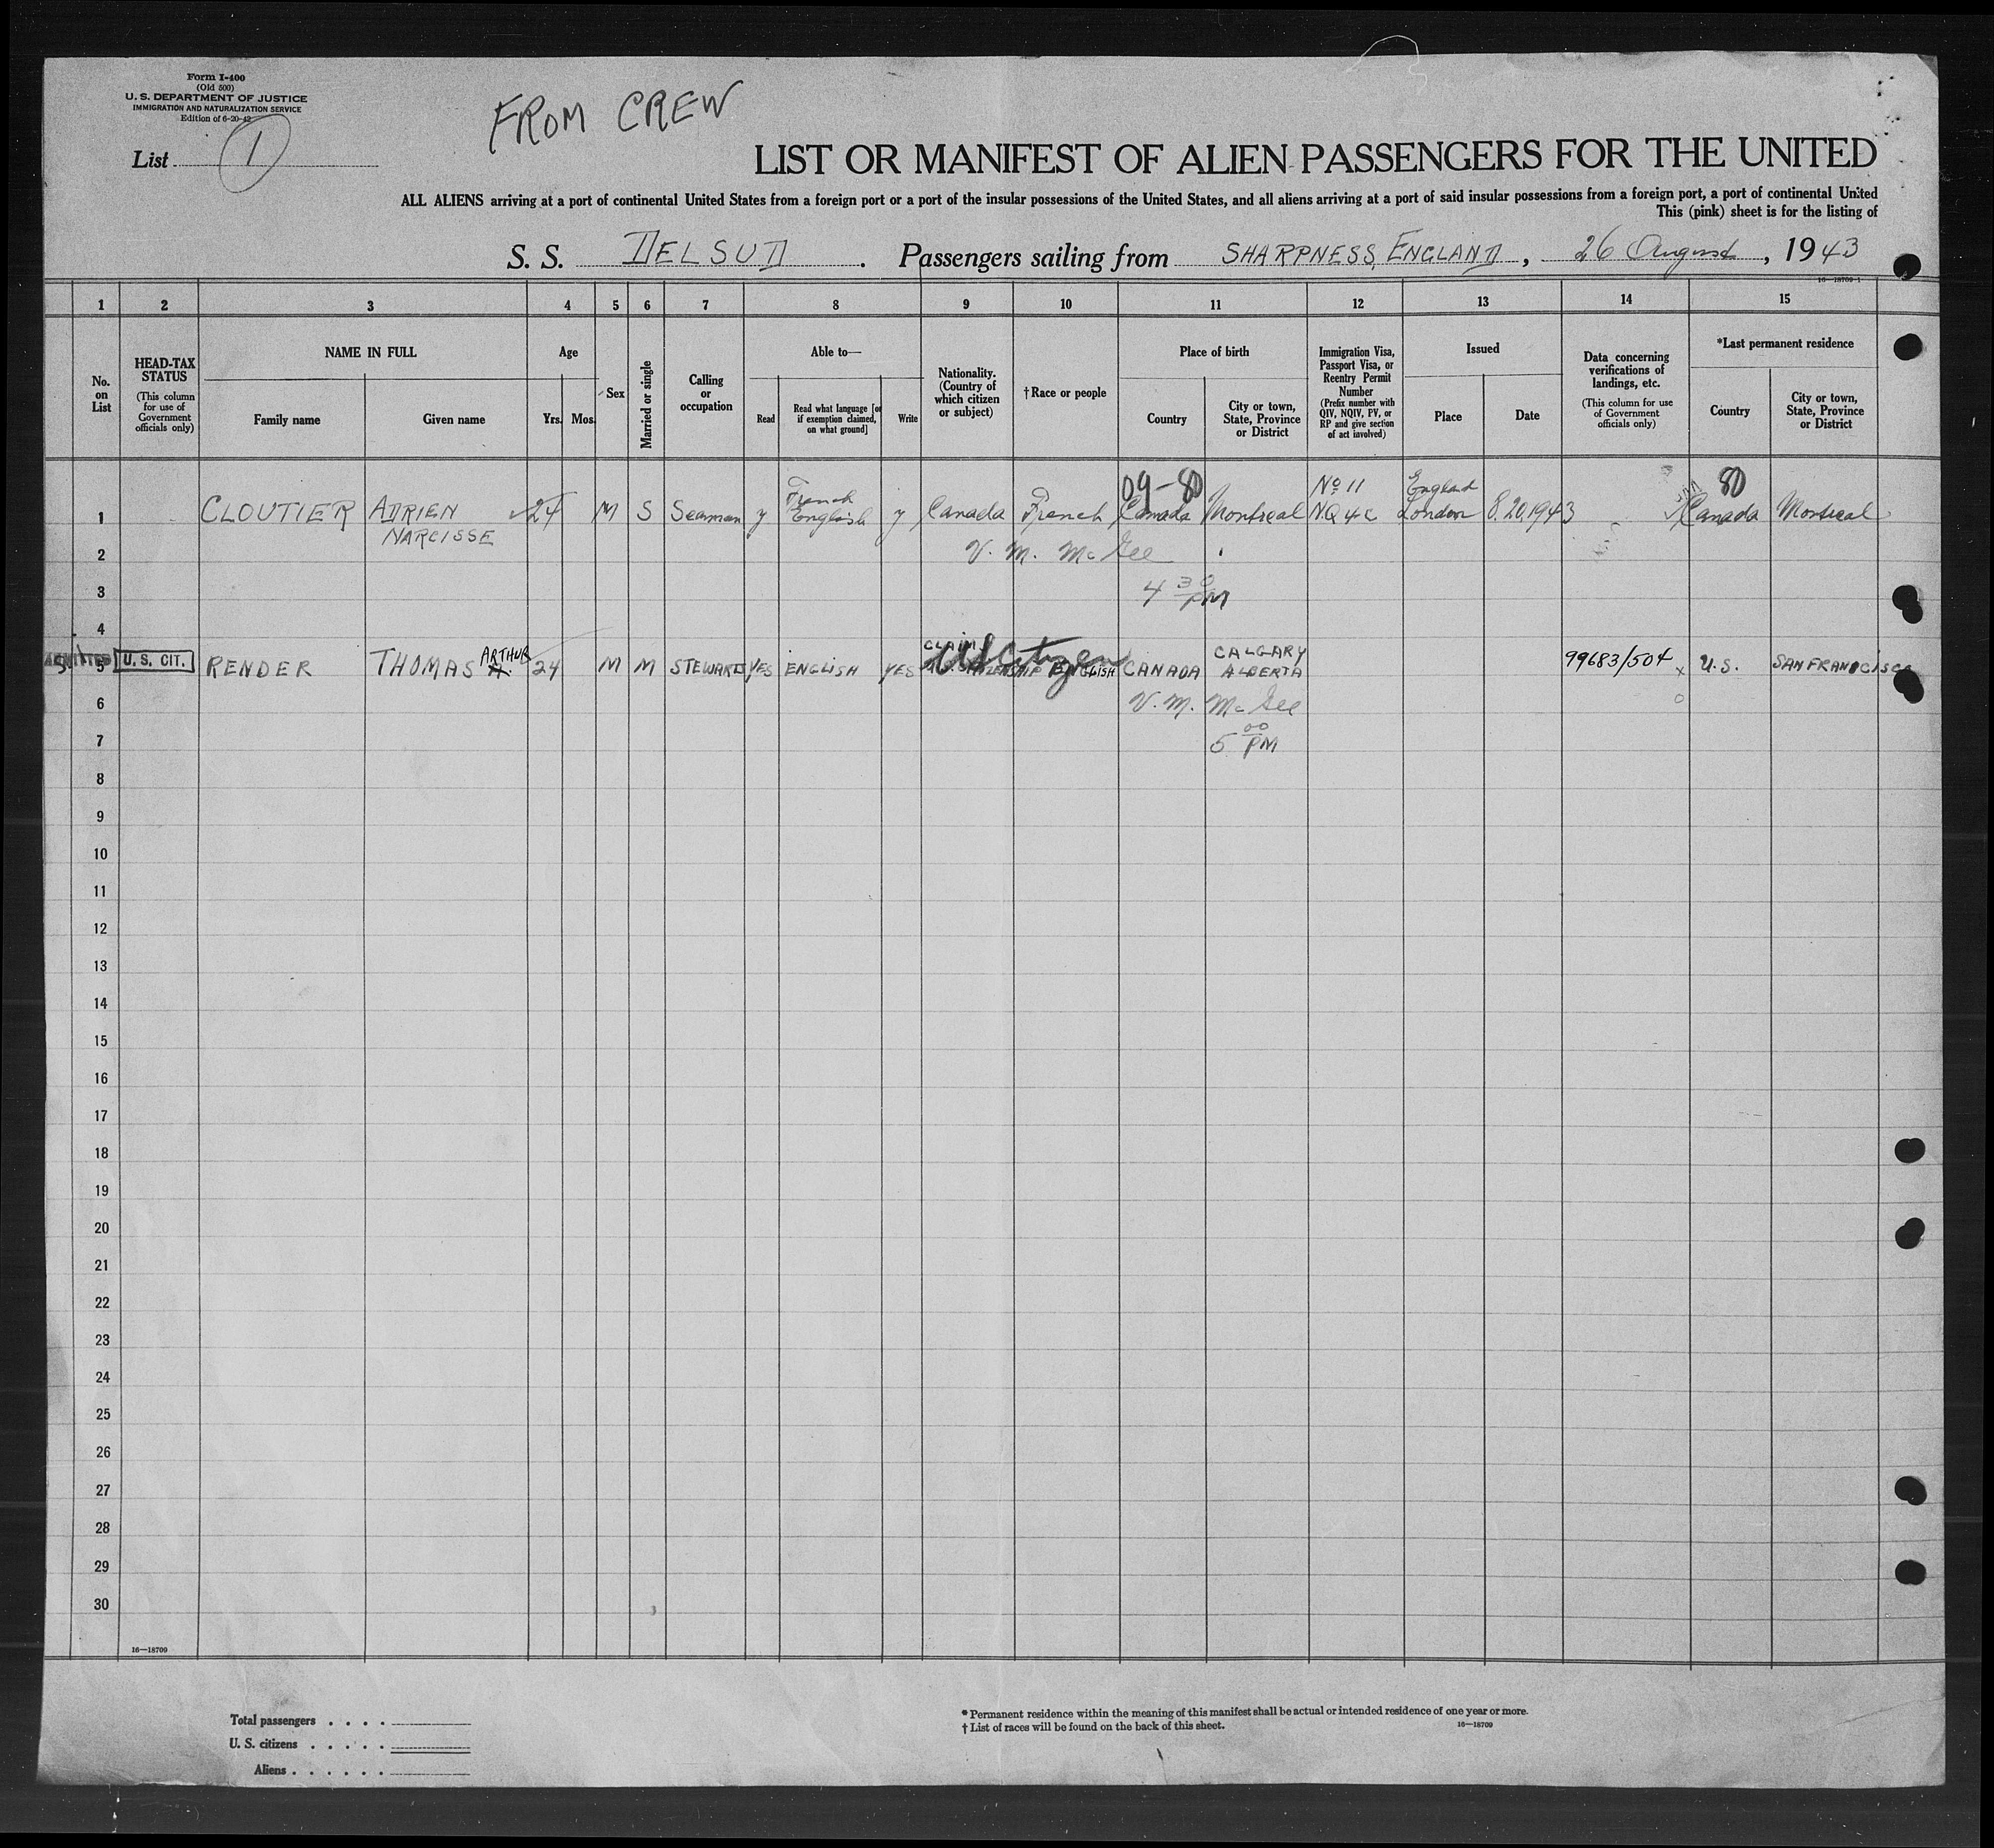 Form I-400
(Old 500)
U. S. DEPARTMENT OF JUSTICE
IMMIGRATION AND NATURALIZATION SERVICE
Edition of 6-20-42
List 1
FROM CREW
LIST OR MANIFEST OF ALIEN PASSENGERS FOR THE UNITED
ALL ALIENS arriving at a port of continental United States from a foreign port or a port of the insular possessions of the United States, and all aliens arriving at a port of said insular possessions from a foreign port, a port of continental United
This (pink) sheet is for the listing of
S. S. DELSUD . Passengers sailing from SHARPNESS, ENGLAND , 26 August , 1943
16—18709-1
1 2 3 4 5 6 7 8 9 10 11 12 13 14 15
No. on List
HEAD-TAX STATUS
(This column for use of Government officials only)
NAME IN FULL
Family name
Given name
Age
Yrs. Mos.
Sex
Married or single
Calling or occupation
Able to—
Read
Read what language [or if exemption claimed, on what ground]
Write
Nationality. (Country of which citizen or subject)
†Race or people
Place of birth
Country
City or town, State, Province or District
Immigration Visa, Passport Visa, or Reentry Permit Number
(Prefix number with QIV, NQIV, PV, or RP and give section of act involved)
Issued
Place
Date
Data concerning verifications of landings, etc.
(This column for use of Government officials only)
*Last permanent residence
Country
City or town, State, Province or District
09-80 No 11 England 80
1 CLOUTIER ADRIEN NARCISSE 24 M S Seaman y French English y Canada French Canada Montreal London 8.20.1943 Canada Montreal
2 V. M. McGee
3 4 30 PM
4
5 ADMITTED U. S. CIT. RENDER THOMAS ARTHUR 24 M M STEWARD YES ENGLISH YES CLAIMS US Citizen ENGLISH CANADA CALGARY ALBERTA 99683/504 U.S. SAN FRANCISCO
6 V. M. McGee
7 5 00 PM
8
9
10
11
12
13
14
15
16
17
18
19
20
21
22
23
24
25
26
27
28
29
30
16—18709
Total passengers . . . .
U. S. citizens . . . . .
Aliens . . . . . .
* Permanent residence within the meaning of this manifest shall be actual or intended residence of one year or more.
† List of races will be found on the back of this sheet.
16—18709